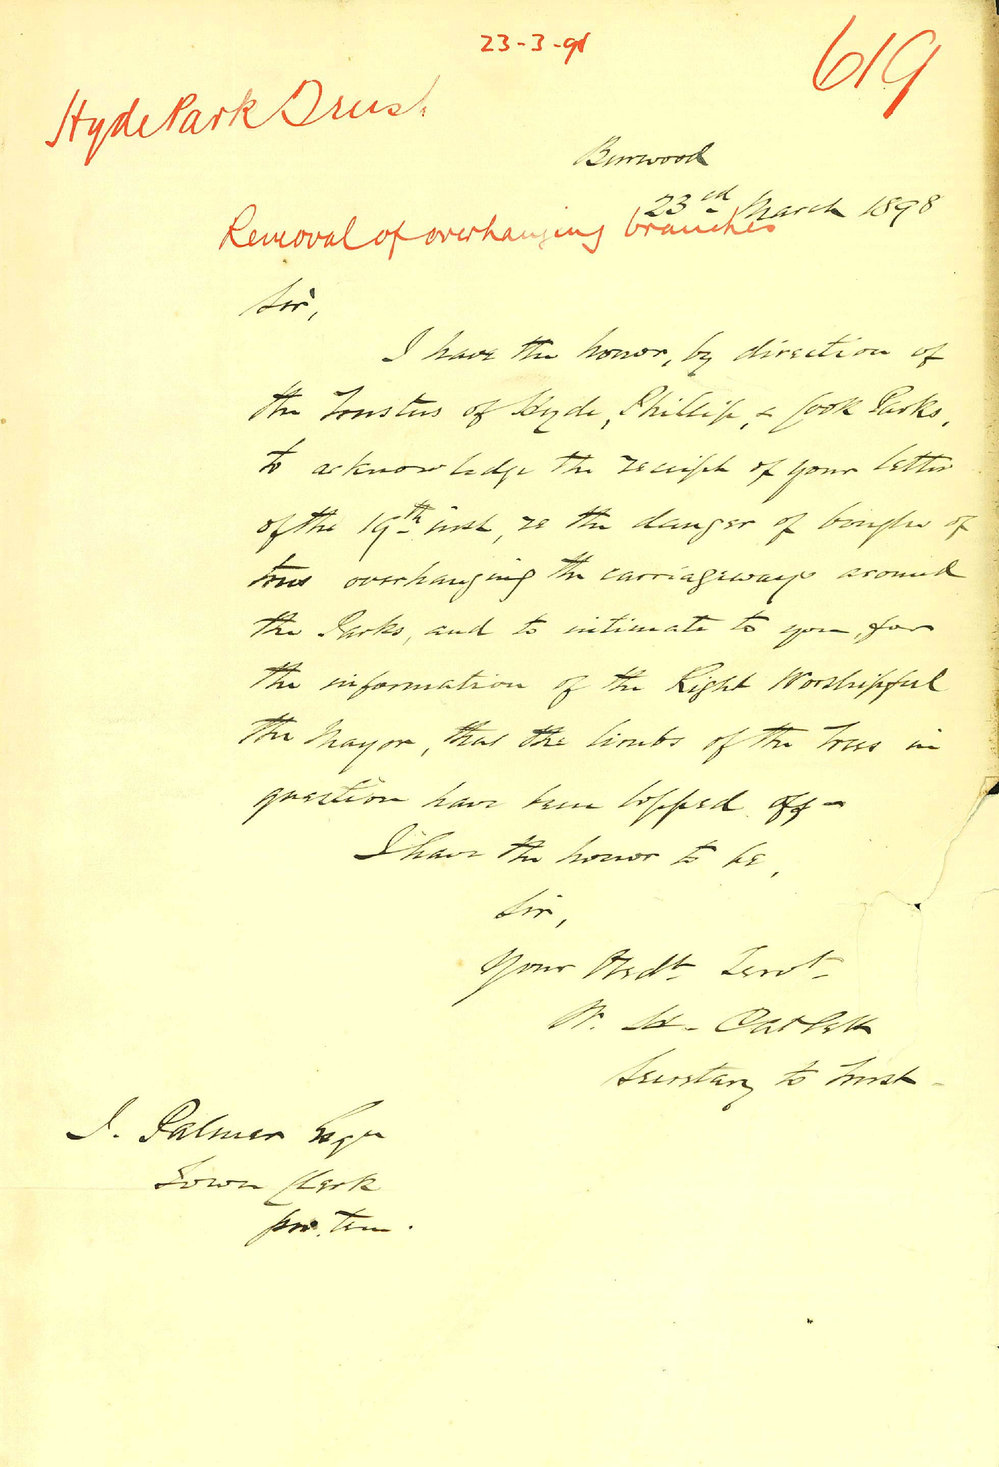 23-3-98
619
Hyde Park Trust
Burwood
23rd March 1898
Removal of overhanging branches
Sir,
I have the honor, by direction of
the Trustees of Hyde, Phillip, & Cook Parks,
to acknowledge the receipt of your letter
of the 19th inst, re the danger of boughs of
trees overhanging the carriageways around
the Parks, and to intimate to you, for
the information of the Right Worshipful
the Mayor, that the limbs of the trees in
question have been lopped off -
I have the honor to be,
Sir,
Your Obedt Servt
W. H.
Secretary to Trust
J. Palmer Esqr
Town Clerk
pro. tem.